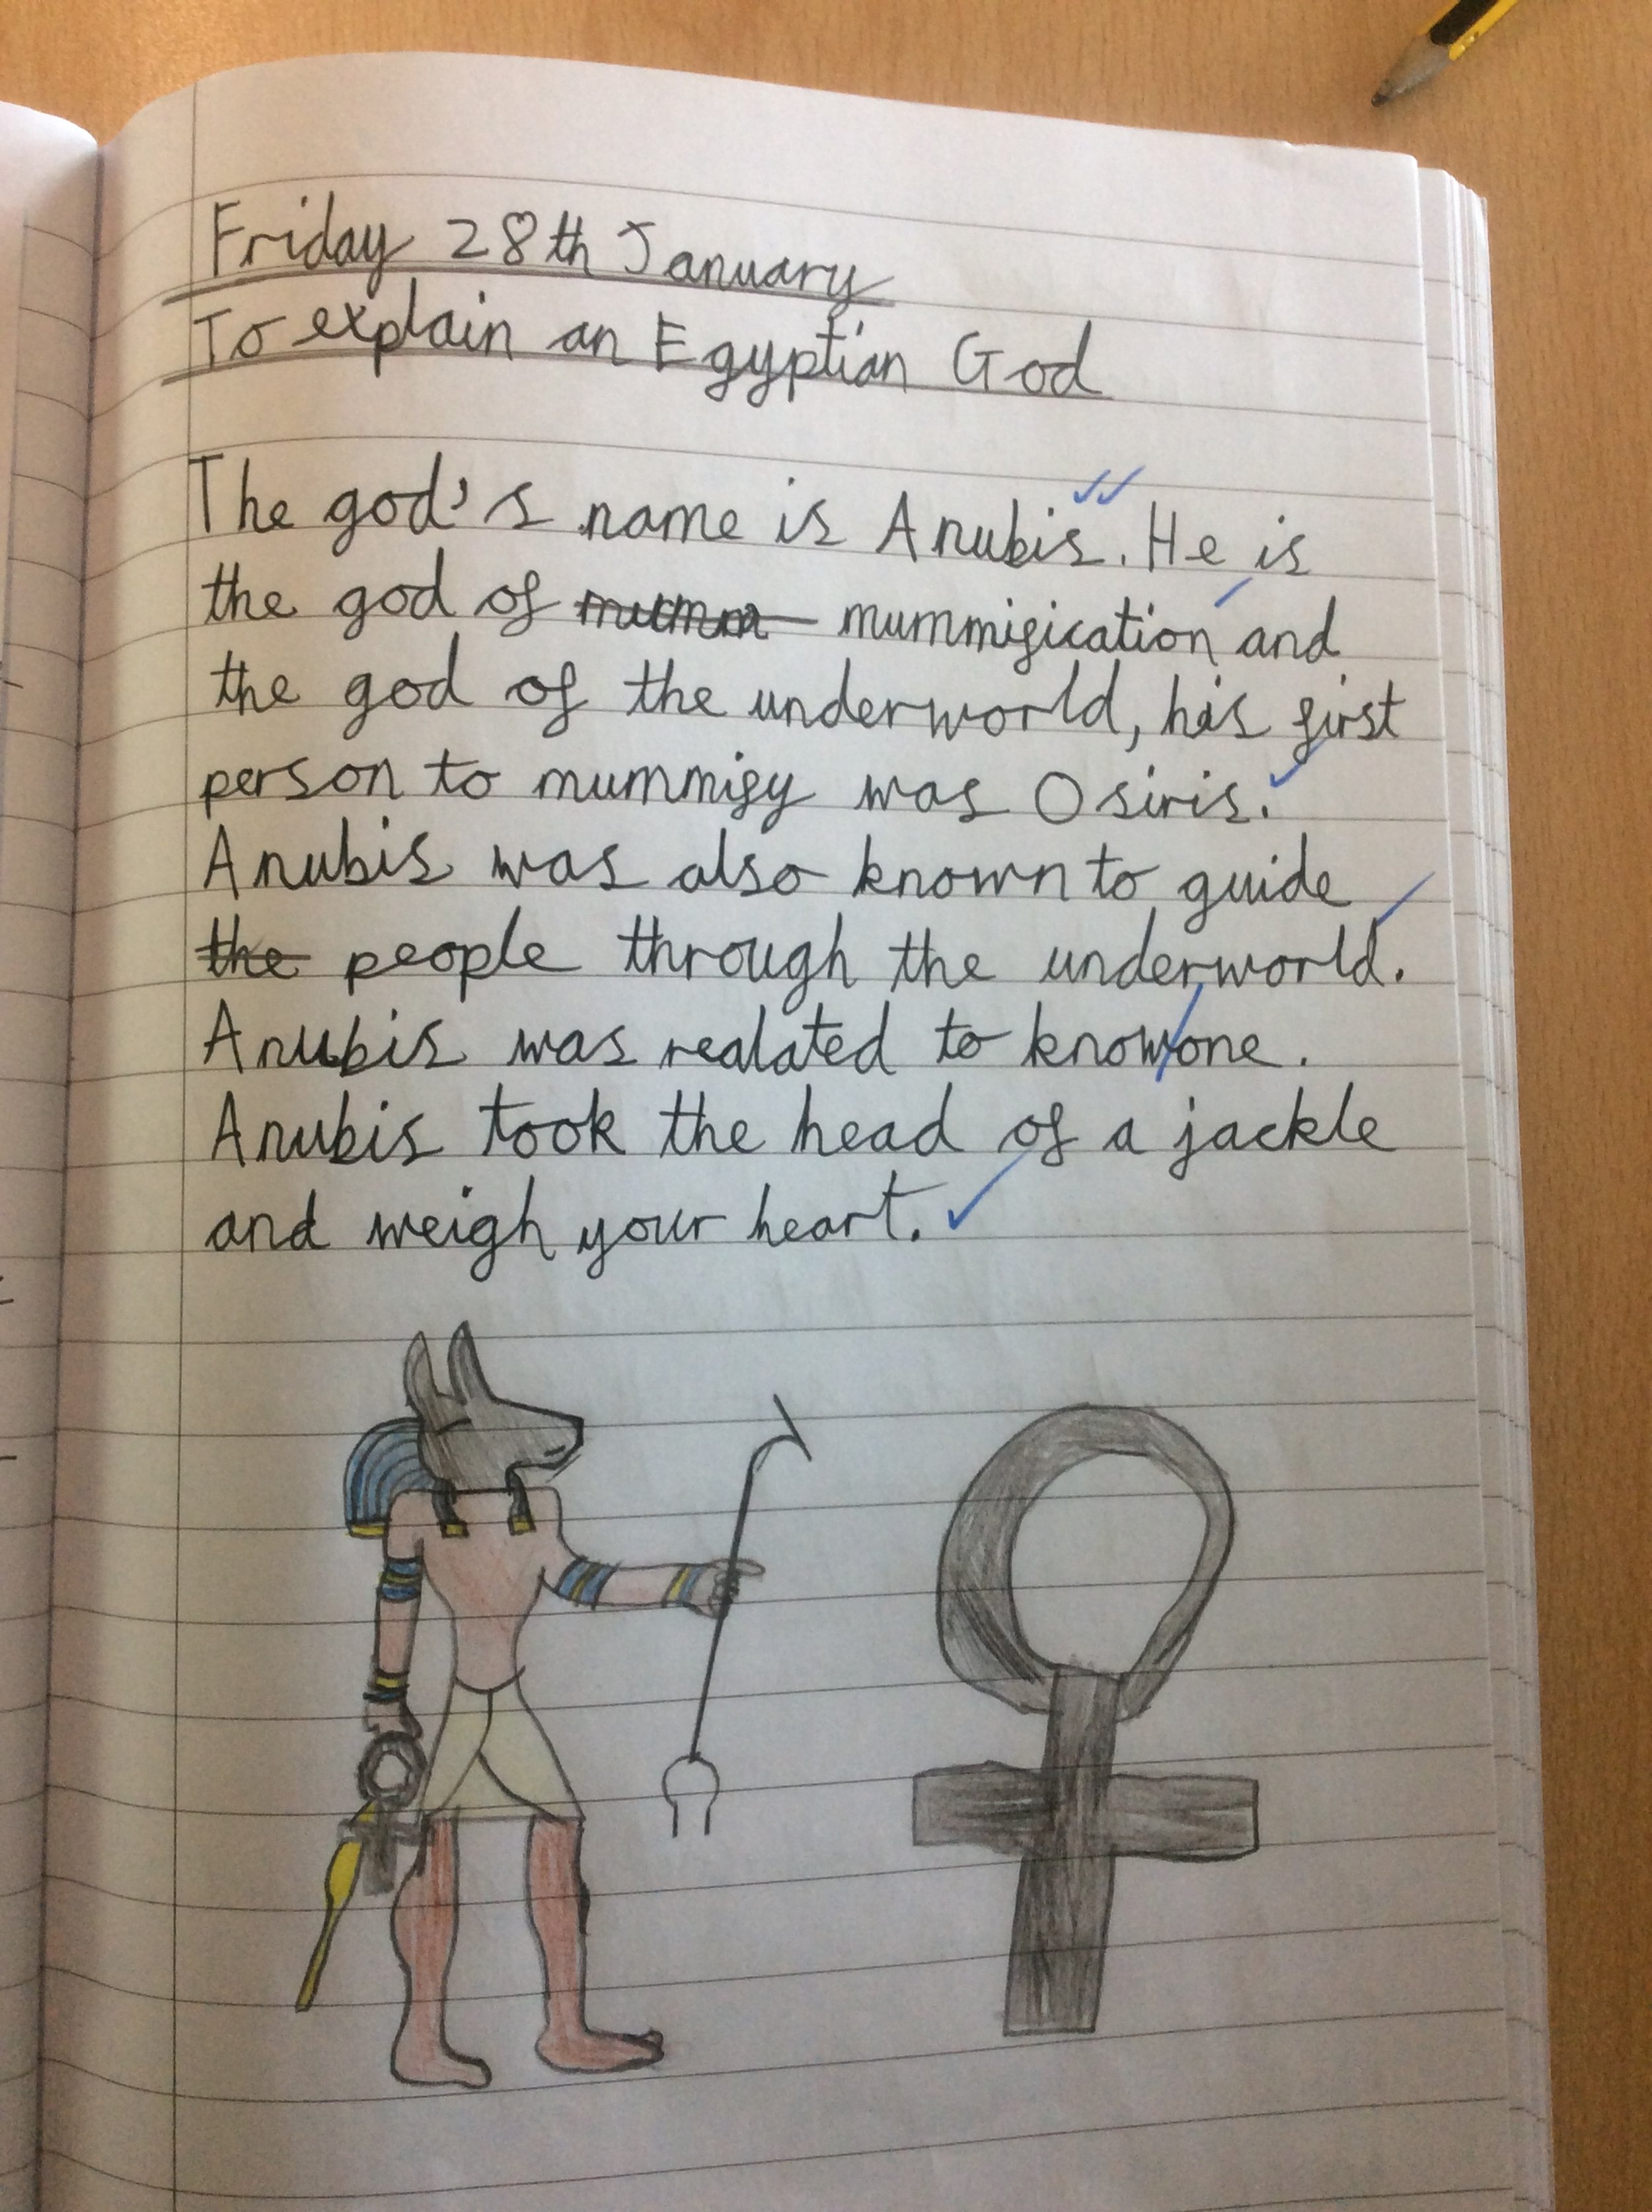 Friday 28th January
To explain an Egyptian God
The god's name is Anubis. He is
the god of mumm mummification and
the god of the underworld, his first
person to mummify was Osiris.
Anubis was also known to guide
the people through the underworld.
Anubis was realated to knowone.
Anubis took the head of a jackle
and weigh your heart.